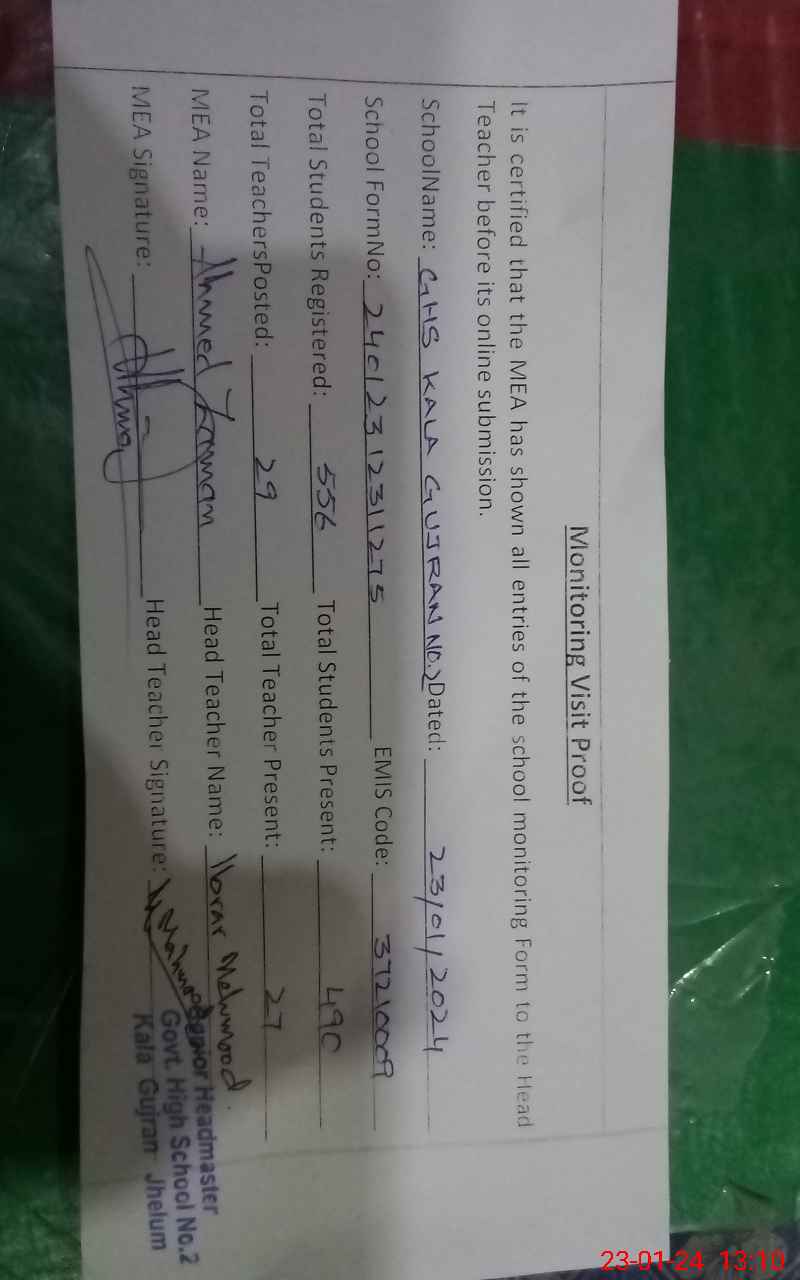 Monitoring Visit Proof
It is certified that the MEA has shown all entries of the school monitoring Form to the Head
Teacher before its online submission.
SchoolName: GHS KALA GUJRAN NO.2 Dated: 23/01/2024
School FormNo: 24012312311275 EMIS Code: 37210009
Total Students Registered: 556 Total Students Present: 490
Total TeachersPosted: 29 Total Teacher Present: 27
MEA Name: Ahmed Zaman Head Teacher Name: Ibrar Mehmood
MEA Signature: Head Teacher Signature:
Senior Headmaster
Govt. High School No.2
Kala Gujran Jhelum
23-01-24 13:10